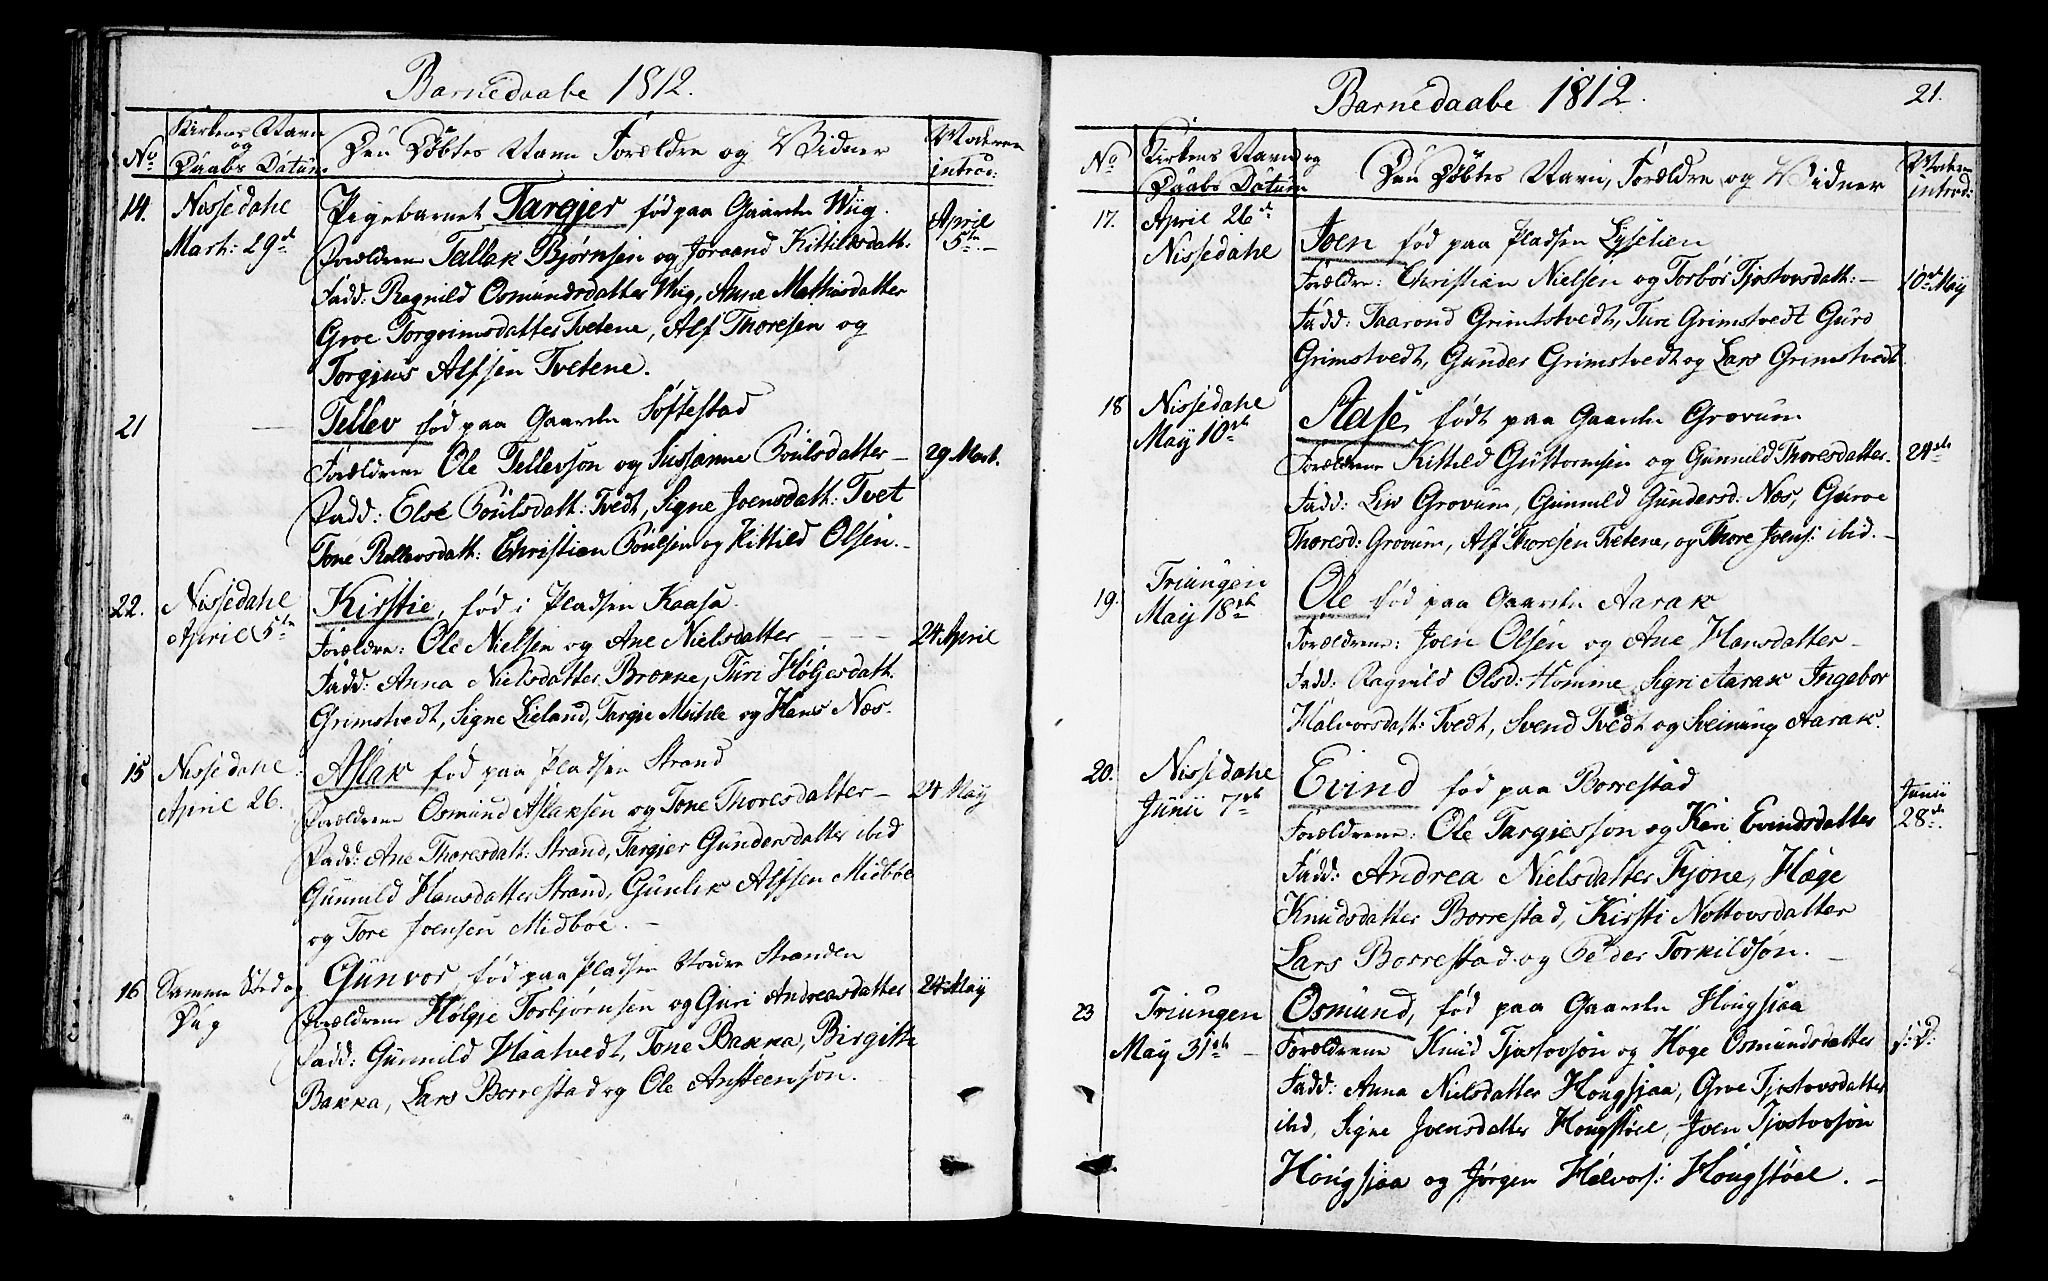 Barnedaabe 1812.
No
Kirkens Navn
og
Daabs Datum
Den Döbtes Navn Forældre og Vidner
Moderen
introd:
14.
Nissedahl
Mart: 29de
Pigebarnet Targjer fød paa Gaarden Wiig.
Forældrene Tellak Bjørnsen og Joraand Kittilsdatt:
April
5te
Fadd: Ragnild Osmundsdatter Wiig, Anne Mathisdatter
Groe Torgrimsdatter Tvetene, Alf Thoresen og
Torgius Alfsen Tvetene.
21
Tellev fød paa Gaarden Søftestad
Forældrene Ole Tellevson og Sussanne Poulsdatter
29 Mart.
Fadd: Else Poulsdatt: Tvedt, Signe Joensdatt: Tvet
Tone Rollevsdatt: Christien Poulsen og Kittild Olsen.
22.
Nissedahl
April 5te
Kirstie, fød i Pladsen Kaasa
Forældre: Ole Nielsen og Ane Nielsdatter
24 April
Fadd: Anna Nielsdatter Brønne, Turi Høljesdatt.
Grimstvedt, Signe Lieland, Targie Mühle og Hans Næs.
15
Nissedahl
April 26.
Aslak fød paa Pladsen Strand
Forældrene Osmund Aslaksen og Tone Thoresdatter
24 Maij
Fadd: Ane Thoresdatt: Strand, Targjer Gundersdatter ibid
Gunnild Hansdatter Strand, Gunlek Alfsen Midböe
og Tore Joensen Midboe.
16
Samme Sted og
Dag
Gunvor, fød paa Pladsen Nordre Stranden
Forældrene Hølgje Torbjørnsen og Guri Andreasdatter
24 Maij
Fadd: Gunnild Haatvedt, Tone Bakka, Birgitte
Bakka, Lars Borrestad og Ole Ansteenson.
Barnedaabe 1812.
21.
No
Kirkens Navn og
Daabs Datum
Den Döbtes Navn, Forældre og Vidner
Moderen
introd:
17.
April 26de
Nissedahl
Joen fød paa Pladsen Lyselien
Forældre: Christian Nielsen og Torbør Tjostovsdatt:
10de Maij
Fadd: Taarond Grimtstvedt, Turi Grimstvedt Guro
Grimstvedt, Gunder Grimstvedt og Lars Grimstvedt
18
Nissedahl
Maij 10de
Aase, født paa Gaarden Grovum
Forældrene Kittild Guttormsen og Gunnild Thoresdatter.
24de
Fadd: Liv Grovum, Gunnild Gundersd: Næs, Guroe
Thoresd: Grovum, Alf Thoresen Tvetene, og Thore Joens: ibid.
19.
Triungen
Maij 18de
Ole fød paa Gaarden Aarak
Forældrene: Joen Olsen og Ane Hansdatter
Fadd: Ragnild Olsd: Homme, Sigri Aarak Ingebor
Halvorsdatt: Tvedt, Svend Tvedt og Sveinung Aarak.
20.
Nissedahl
Junii 7de
Evind fød paa Borrestad
Forældrene: Ole Targiesson og Kari Evindsdatter
Junii
28de
Fadd: Andrea Nielsdatter Fjone, Hæge
Knudsdatter Borrestad, Kirsti Nottovsdatter
Lars Borrestad og Peder Torkildsøn.
23
Triungen
Maij 31te
Osmund, fød paa Gaarden Hougsjaa
Forældrene Knud Tjostovsøn og Høge Osmundsdatter
s: D:
Fadd: Anna Nielsdatter Hougsjaa, Groe Tjostovsdatter
ibid, Signe Joensdatter Hougstöel, Joen Tjostovsøn
Hougsjaa og Jørgen Halvors: Hougstöel.